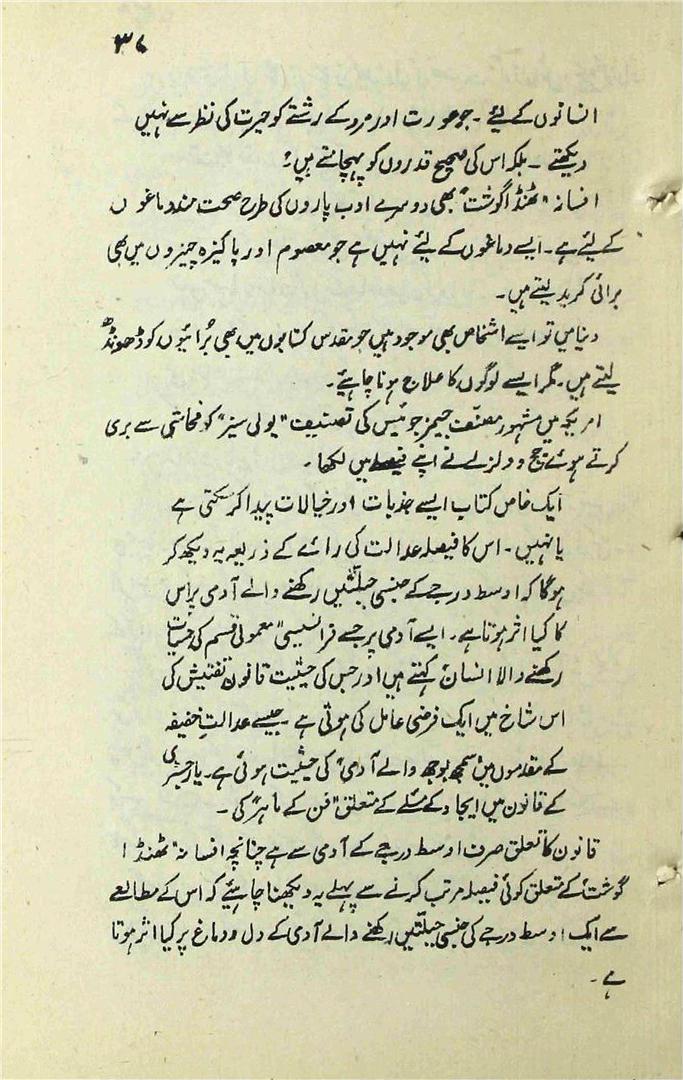 ۳۷
انسانوں کے لیئے ۔ جو عورت اور مرد کے رشتے کو حیرت کی نظر سے نہیں
دیکھتے ۔ بلکہ اس کی صحیح قدروں کو پہچانتے ہیں؟
افسانہ "ٹھنڈا گوشت" بھی دوسرے ادب پاروں کی طرح صحت مند دماغوں
کے لیئے ہے ۔ ایسے دماغوں کے لیئے نہیں ہے جو معصوم اور پاکیزہ چیزوں میں بھی
برائی کرید لیتے ہیں ۔
دنیا میں تو ایسے اشخاص بھی موجود ہیں جو مقدس کتابوں میں بھی بُرائیوں کو ڈھونڈھ
لیتے ہیں ۔ مگر ایسے لوگوں کا علاج ہونا چاہیئے ۔
امریکہ میں مشہور مصنّف جیمز جوئیس کی تصنیف "یولی سیز" کو فحاشی سے بری
کرتے ہوئے جج وولزلے نے اپنے فیصلے میں لکھا ۔
ایک خاص کتاب ایسے جذبات اور خیالات پیدا کر سکتی ہے
یا نہیں ۔ اس کا فیصلہ عدالت کی رائے کے ذریعہ یہ دیکھ کر
ہوگا کہ اوسط درجے کے جنسی جبلّتیں رکھنے والے آدمی پر اس
کا کیا اثر ہوتا ہے ۔ ایسے آدمی پر جسے فرانسیسی "معمولی قسم کی حسیات
رکھنے والا انسان" کہتے ہیں اور جس کی حیثیت قانون تفتیش کی
اس شاخ میں ایک فرضی عامل کی ہوتی ہے ۔ جیسے عدالتِ خفیفہ
کے مقدموں میں "سمجھ بوجھ والے آدمی" کی حیثیت ہوتی ہے ۔ یا رجسٹری
کے قانون میں ایجاد کے مسئلے کے متعلق "فن کے ماہر" کی ۔
قانون کا تعلق صرف اوسط درجے کے آدمی سے ہے چنانچہ افسانہ "ٹھنڈا
گوشت" کے متعلق کوئی فیصلہ مرتب کرنے سے پہلے یہ دیکھنا چاہیئے کہ اس کے مطالعے
سے ایک اوسط درجے کی جنسی جبلّتیں رکھنے والے آدمی کے دل و دماغ پر کیا اثر ہوتا
ہے ۔